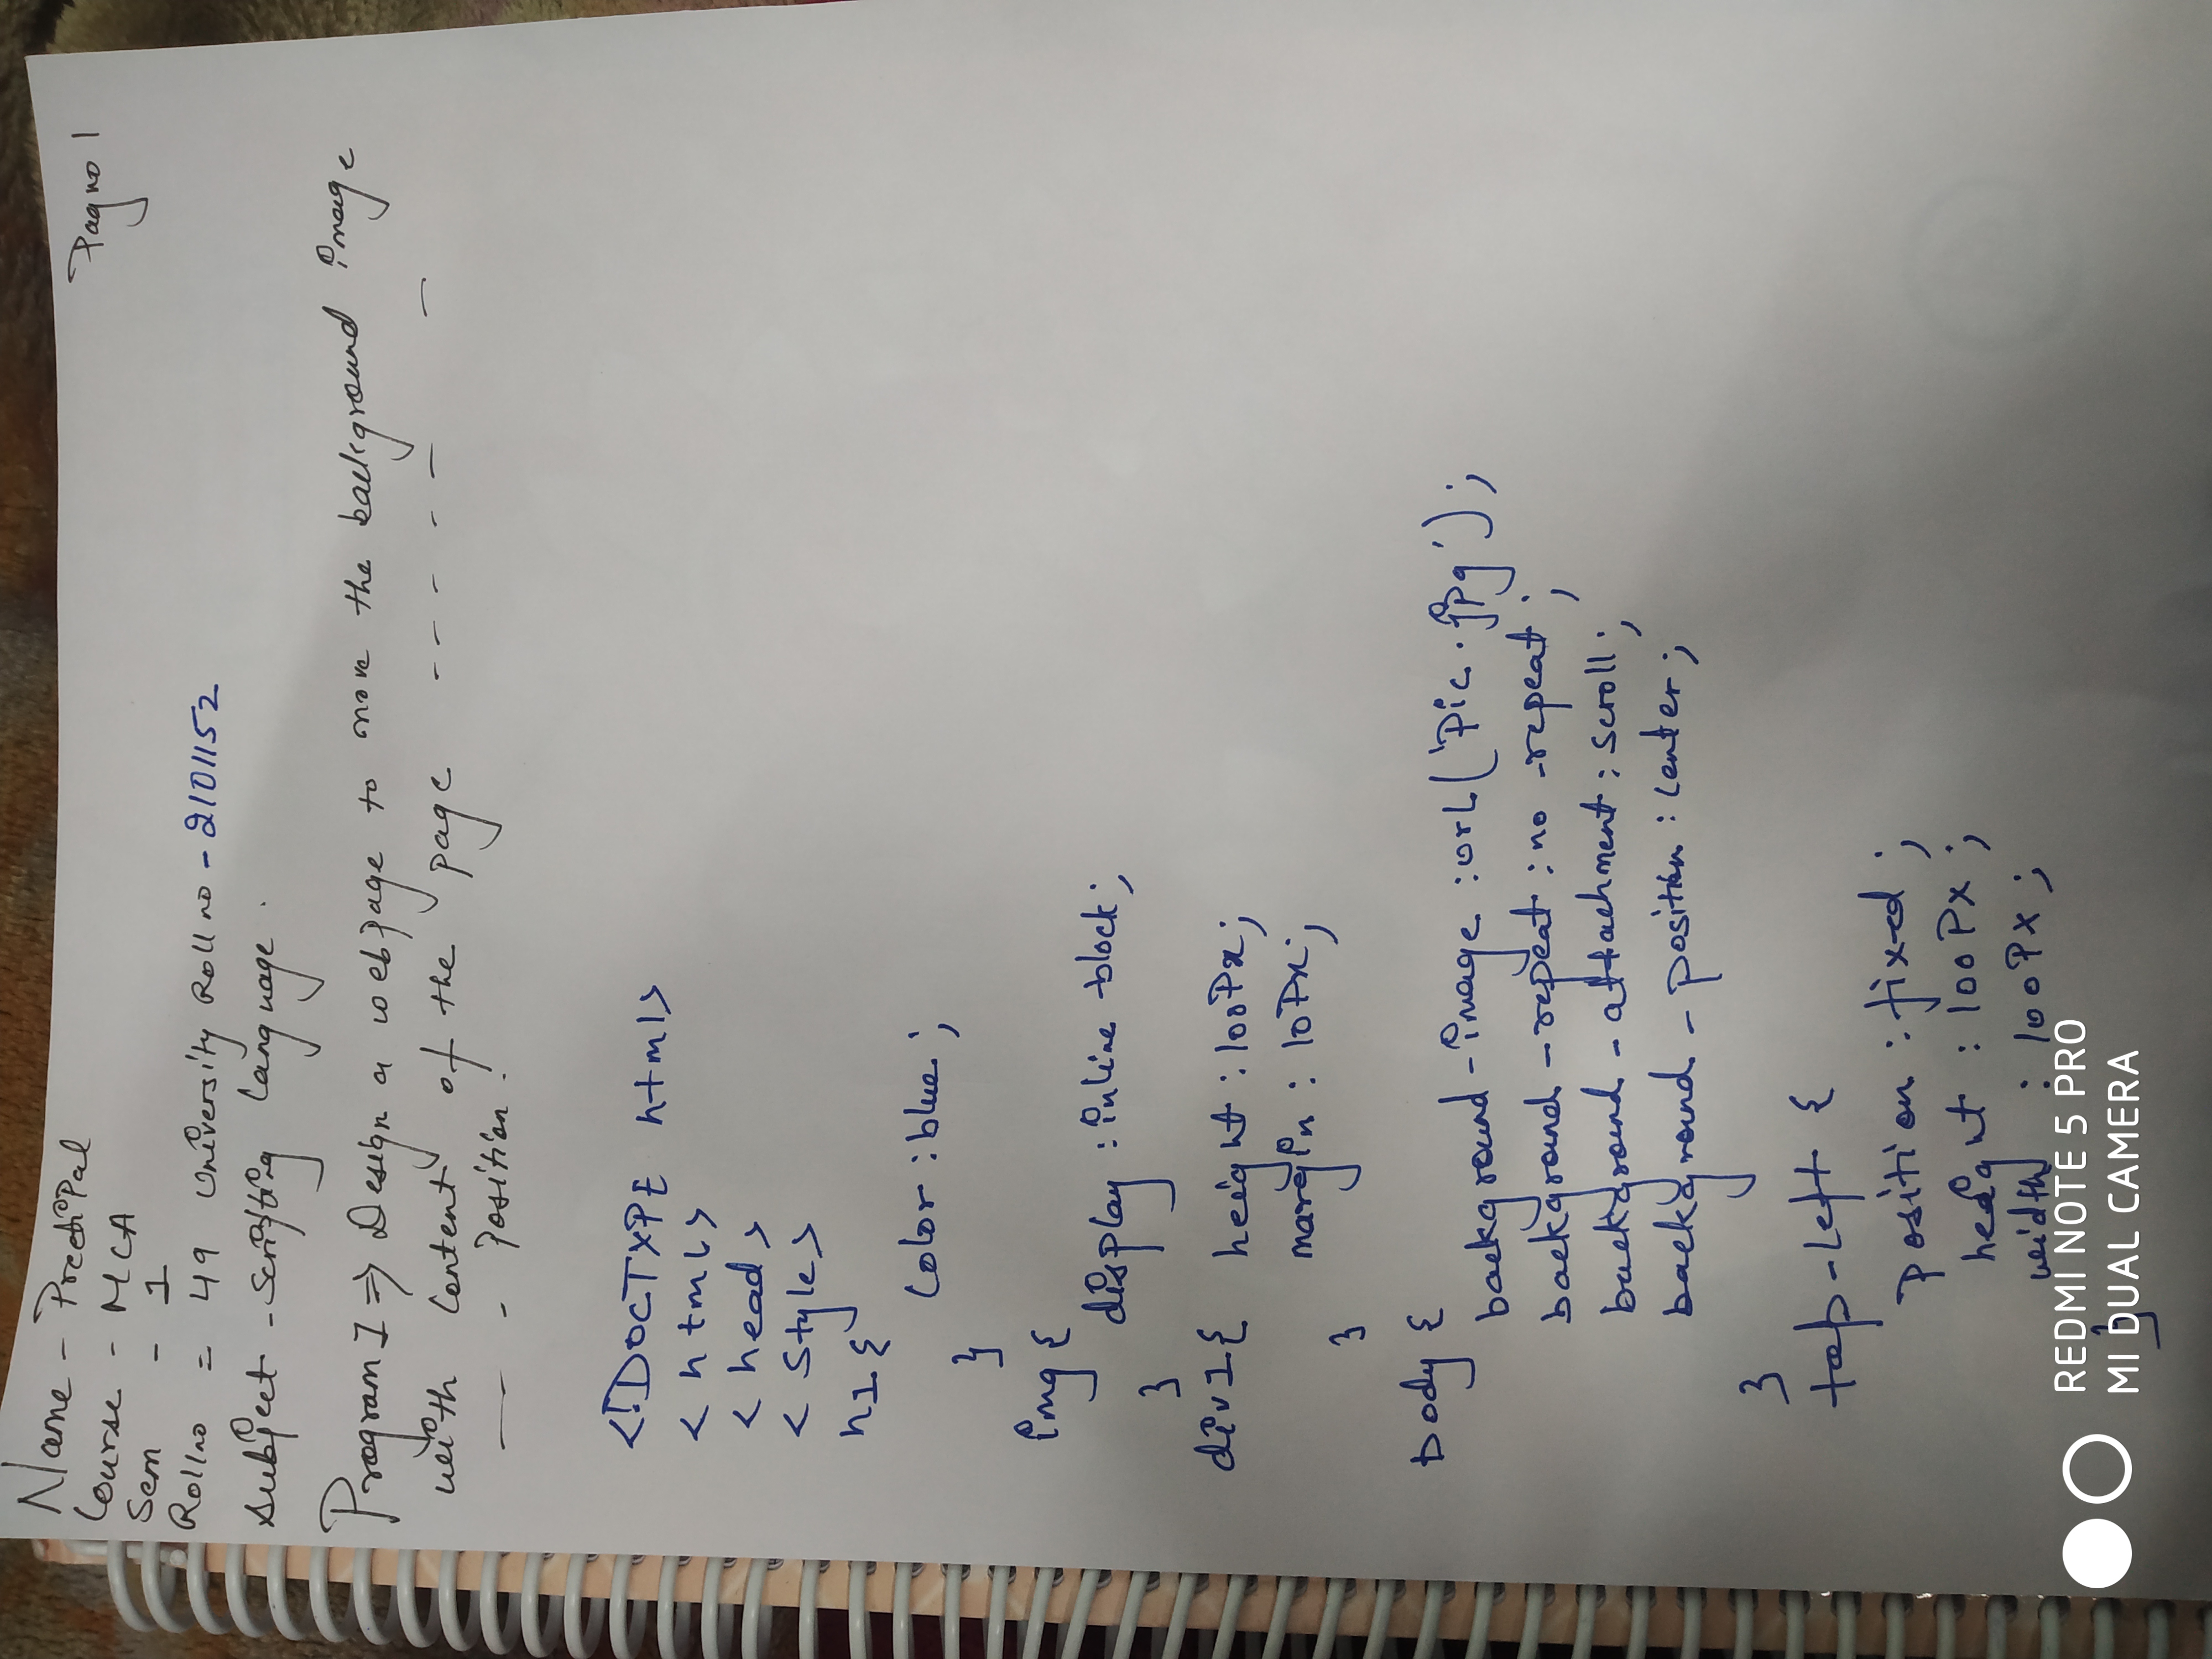 Name - Preeti Pal
Pag no 1
Course - MCA
Sem - 1
Roll no = 49 University Roll no - 2101152
Subject - Scripting Language.
Program 1 => Design a webpage to move the background image
with Content of the page - - - - - -
- - Position.
<!DOCTYPE html>
<html>
<head>
<style>
h1{
Color : blue ;
}
img {
display : inline-block;
}
div1{ height : 100Px;
margin : 10Px;
}
body {
background-image : url('Pic.jpg');
background-repeat : no-repeat;
background-attachment : scroll;
background-position : Center;
}
top-left {
Position : fixed ;
height : 100Px ;
width : 100Px ;
}
REDMI NOTE 5 PRO
MI DUAL CAMERA